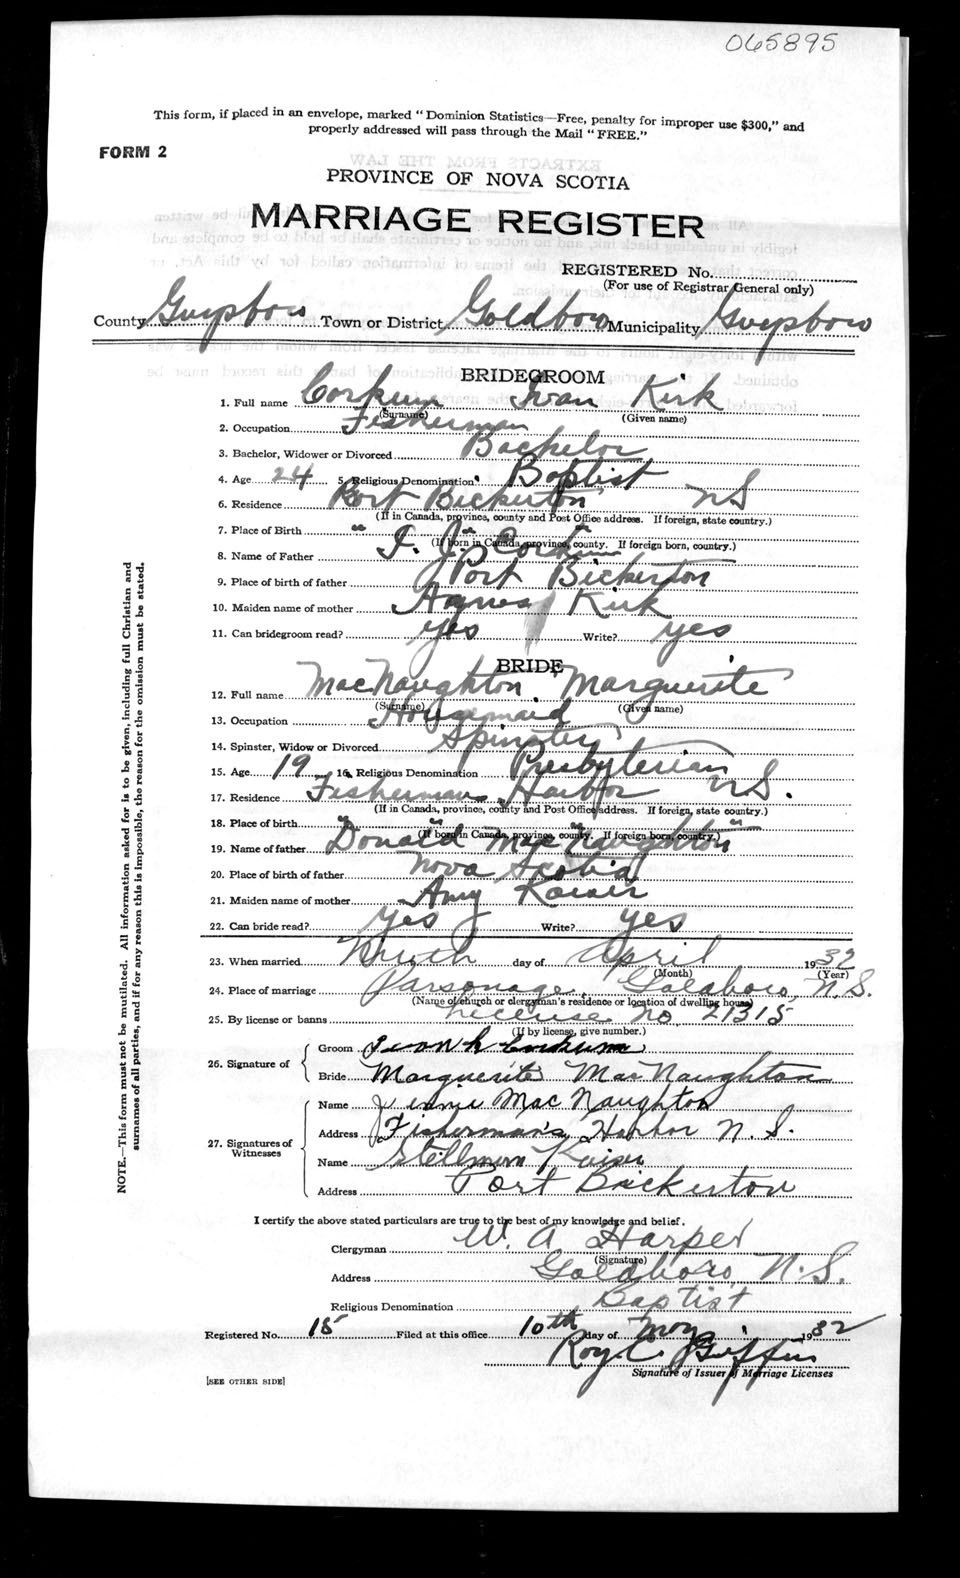 065895
This form, if placed in an envelope, marked "Dominion Statistics—Free, penalty for improper use $300," and
properly addressed will pass through the Mail "FREE."
FORM 2
PROVINCE OF NOVA SCOTIA
MARRIAGE REGISTER
REGISTERED No.
(For use of Registrar General only)
County Guysboro Town or District Goldboro Municipality Guysboro
BRIDEGROOM
1. Full name Corkum Ivan Kirk
(Surname) (Given name)
2. Occupation Fisherman
3. Bachelor, Widower or Divorced Bachelor
4. Age 24 5. Religious Denomination Baptist
6. Residence Port Bickerton NS
(If in Canada, province, county and Post Office address. If foreign, state country.)
7. Place of Birth " "
(If born in Canada, province, county. If foreign born, country.)
8. Name of Father J. Corkum
9. Place of birth of father Port Bickerton
10. Maiden name of mother Agnes Kirk
11. Can bridegroom read? yes Write? yes
BRIDE
12. Full name MacNaughton Marguerite
(Surname) (Given name)
13. Occupation Housemaid
14. Spinster, Widow or Divorced Spinster
15. Age 19 16. Religious Denomination Presbyterian
17. Residence Fishermans Harbor N.S.
(If in Canada, province, county and Post Office address. If foreign, state country.)
18. Place of birth " " " "
(If born in Canada, province, county. If foreign born, country.)
19. Name of father Donald MacNaughton
20. Place of birth of father Nova Scotia
21. Maiden name of mother Amy Kaiser
22. Can bride read? Yes Write? yes
23. When married Ninth day of April 1932
(Month) (Year)
24. Place of marriage Parsonage, Goldboro, N.S.
(Name of church or clergyman's residence or location of dwelling house)
25. By license or banns License no. 21315
(If by license, give number.)
26. Signature of
Groom Ivan K Corkum
Bride Marguerite MacNaughton
27. Signatures of Witnesses
Name Jennie MacNaughton
Address Fisherman's Harbor N.S.
Name Stillman Kaiser
Address Port Bickerton
I certify the above stated particulars are true to the best of my knowledge and belief.
Clergyman W. A Harper
(Signature)
Address Goldboro, N.S.
Religious Denomination Baptist
Registered No. 15 Filed at this office 10th day of May 1932
Roy C. Giffin
Signature of Issuer of Marriage Licenses
[SEE OTHER SIDE]
NOTE.—This form must not be mutilated. All information asked for is to be given, including full Christian and
surnames of all parties, and if for any reason this is impossible, the reason for the omission must be stated.